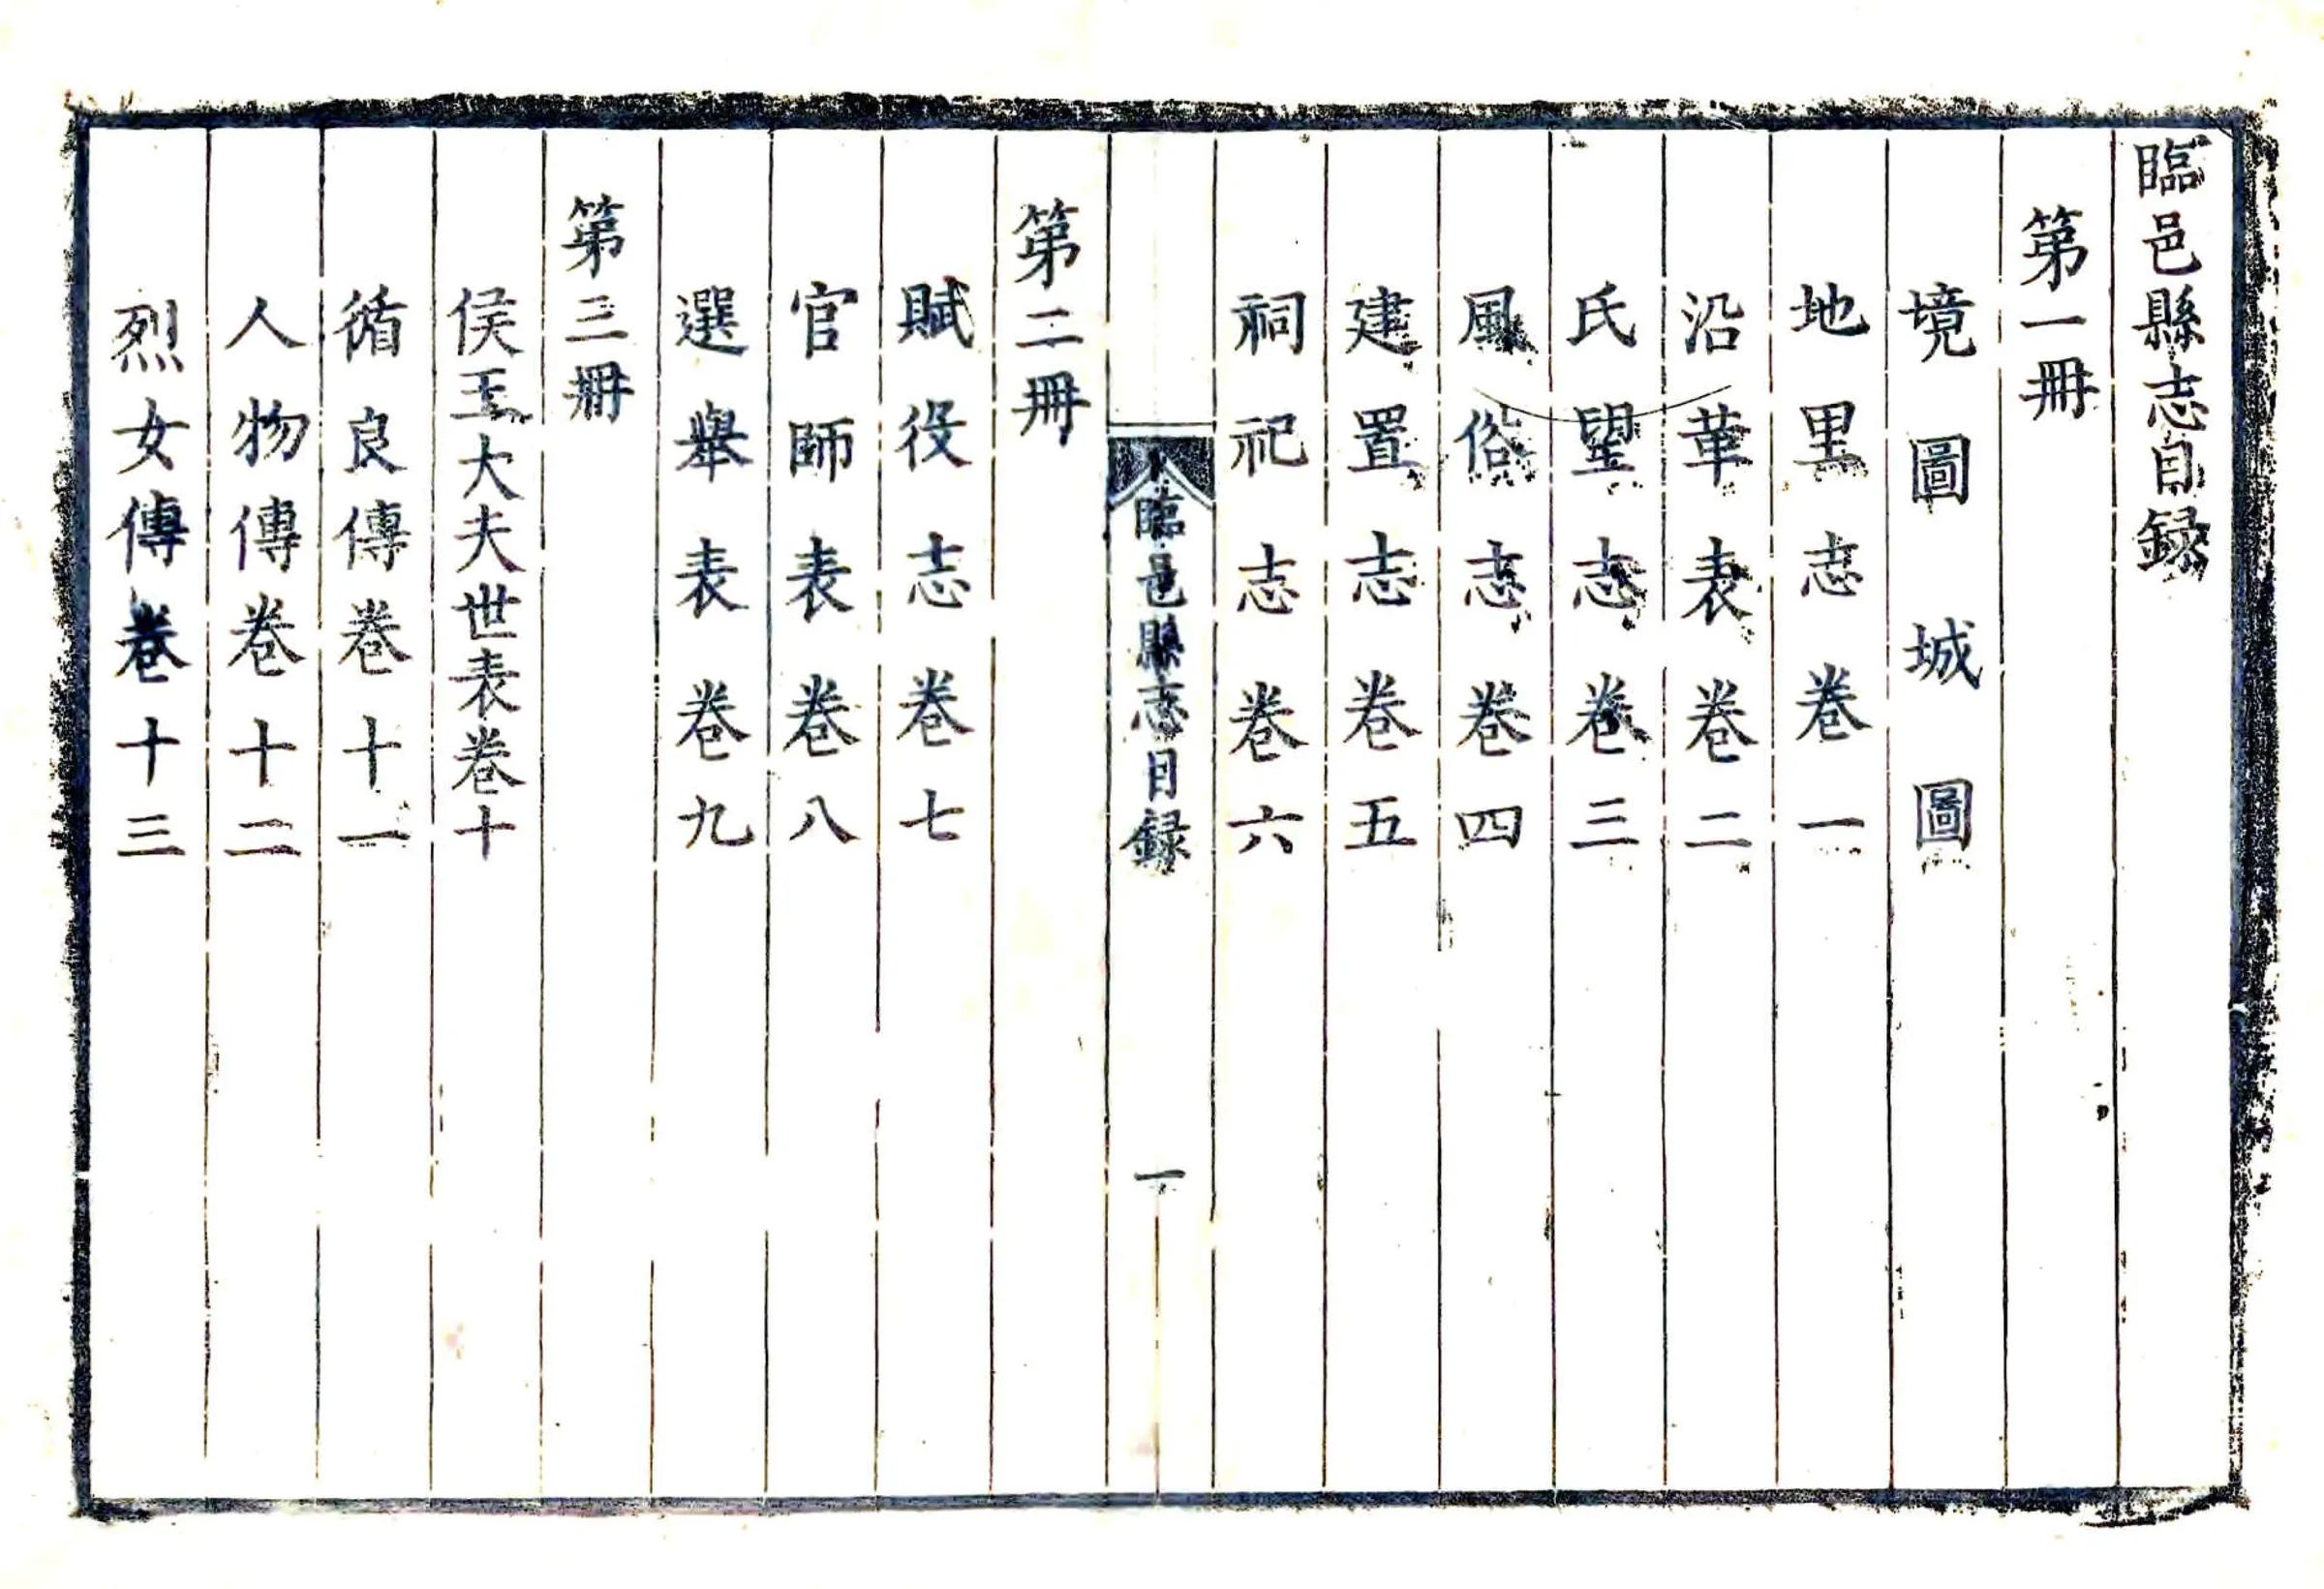 臨邑縣志目録
第一冊
境圖城圖
地里志卷一
沿革表卷二
氏望志卷三
風俗志卷四
建置志卷五
祠祀志卷六
臨邑縣志目録
一
第二冊
賦役志卷七
官師表卷八
選舉表卷九
第三冊
侯王大夫世表卷十
循良傳卷十一
人物傳卷十二
烈女傳卷十三